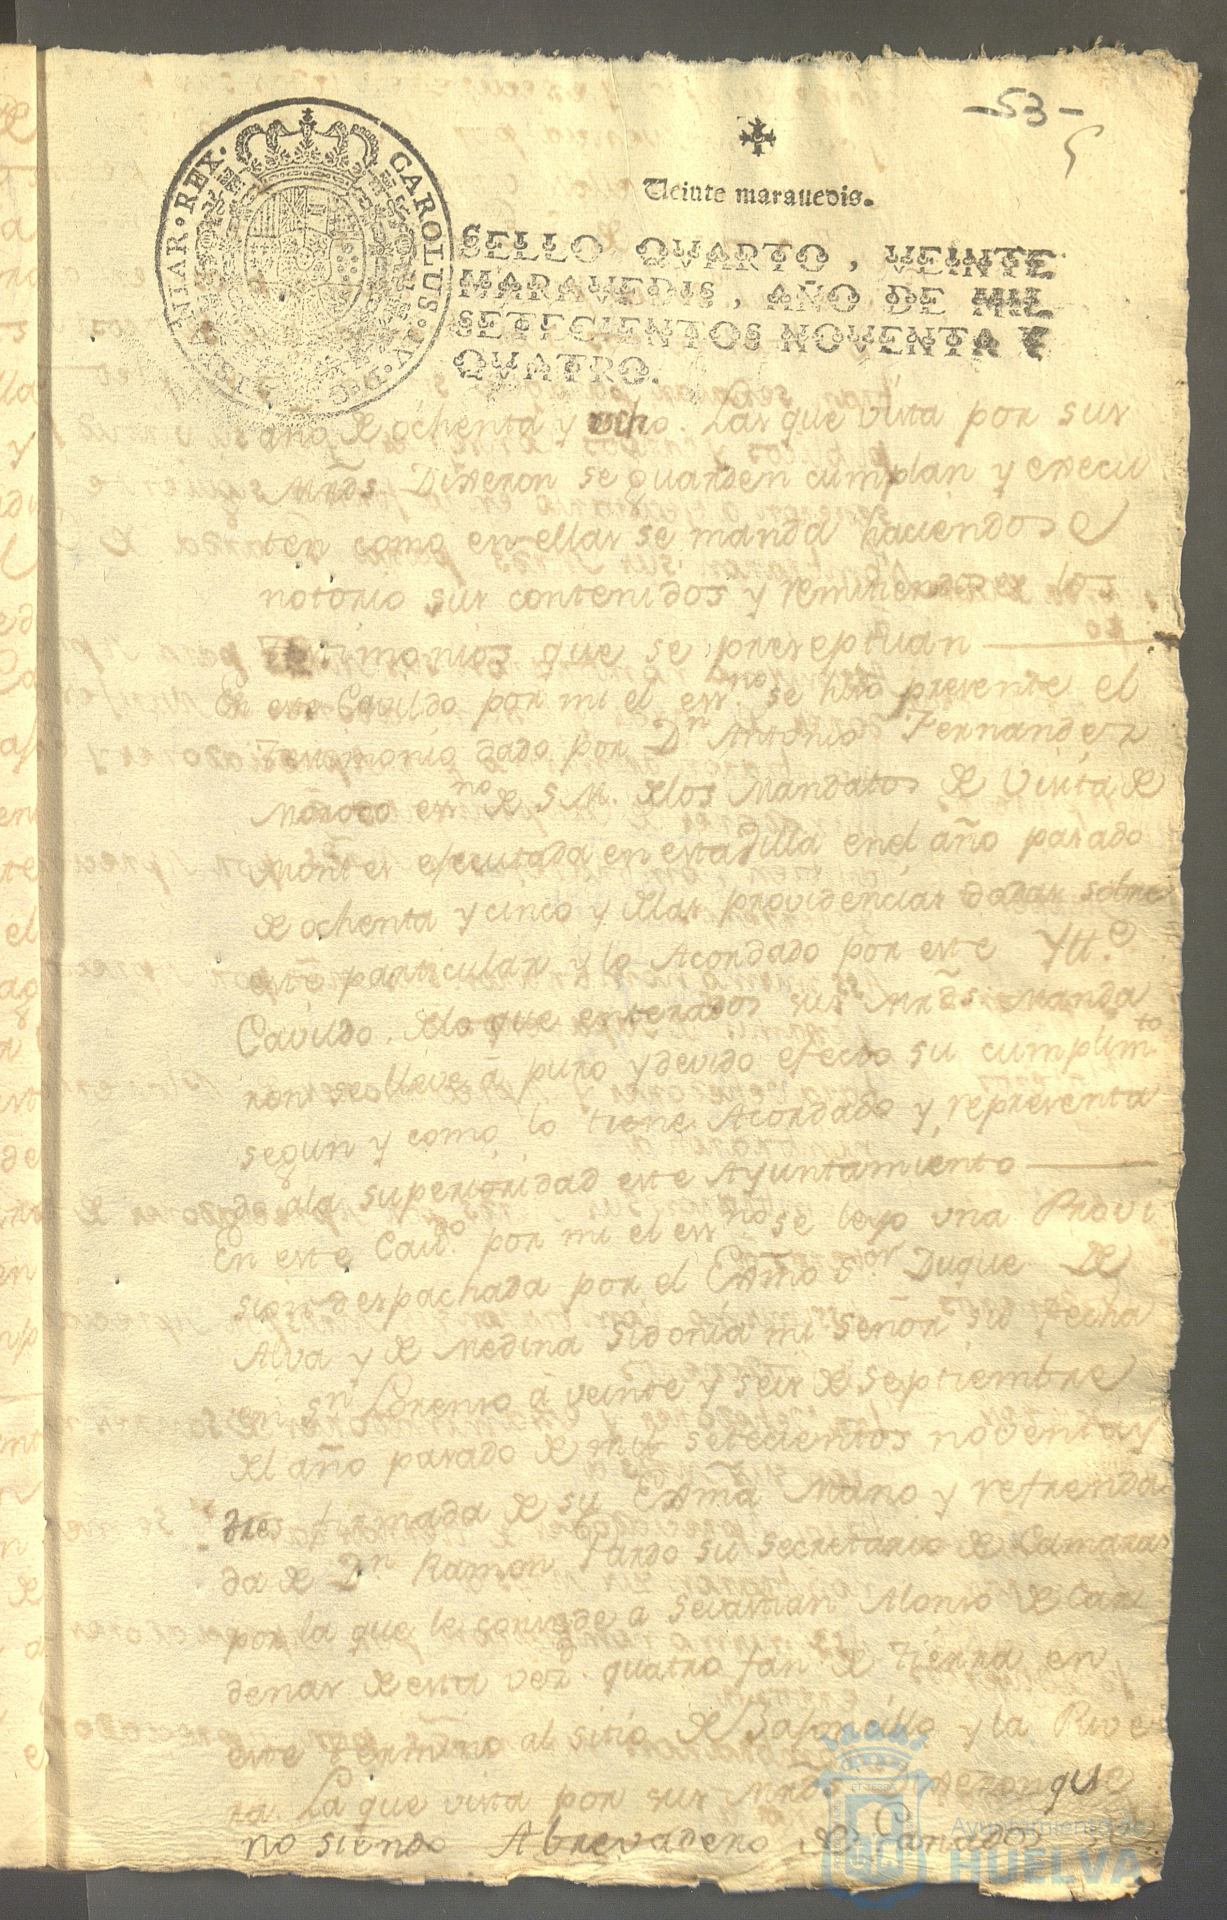 -53-
5
CAROLUS · IV · D · G · HISPANIAR · REX ·
Veinte maravedis.
SELLO QVARTO, VEINTE
MARAVEDIS, AÑO DE MIL
SETECIENTOS NOVENTA Y
QVATRO.
año de ochenta y ocho. Las que vista por sus
Mrds Dixeron se guarden cumplan y execu
ten como en ellas se manda haciendose
notorio sus contenidos y remitiendose los
testimonios que se preseptuan
En este Cavildo por mi el essno se hizo presente el
testimonio dado por Dn Antonio Fernandez
essno de S.M. de los Mandatos de Visita de
Montes efecutada en esta Villa en el año pasado
de ochenta y cinco y de las providencias dadas sobre
este particular y lo Acordado por este Ytte
Cavildo. de lo que enterados sus Mrds Manda
ron se lleve â puro y devido efecto su cumplimto
segun y como lo tiene Acordado y representa
do ala superioridad este Ayuntamiento
En este Cavdo por mi el essno se leyo una Provi
sion despachada por el Exmo Sor Duque De
Alva y de Medina Sidonia mi señor su fecha
en Sn Lorenzo â veinte y seis de Septiembre
del año pasado de mil setecientos noventa y
tres firmada de su Exma Mano y refrenda
da de Dn Ramon Pardo su Secretario de Camara
por la que le consede a Sevastian Alonso de Car
denas de esta vez. quatro fans de tierra en
este termino al sitio de Balsoncillo y la Rive
ra. La que vista por sus Mrds Dixeron que
no siendo Abrevadero de Ganados
Ayuntamiento de
HUELVA